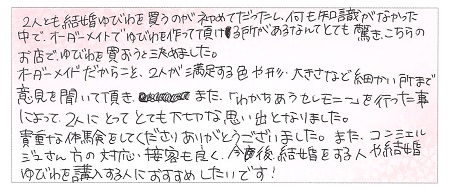 2人とも結婚ゆびわを買うのが初めてだったし、何も知識がなかった
中で、オーダーメイドでゆびわを作って頂ける所があるなんてとても驚き、こちらの
お店で、ゆびわを買おうと決めました。
オーダーメイドだからこそ、2人が満足する色や形・大きさなど細かい所まで
意見を聞いて頂き、また、「わかちあうセレモニー」を行った事
によって、2人にとってとても大切な思い出となりました。
貴重な体験をしてくださりありがとうございました。また、コンシェル
ジュさん方の対応・接客も良く、今後結婚をする人や結婚
ゆびわを購入する人におすすめしたいです!